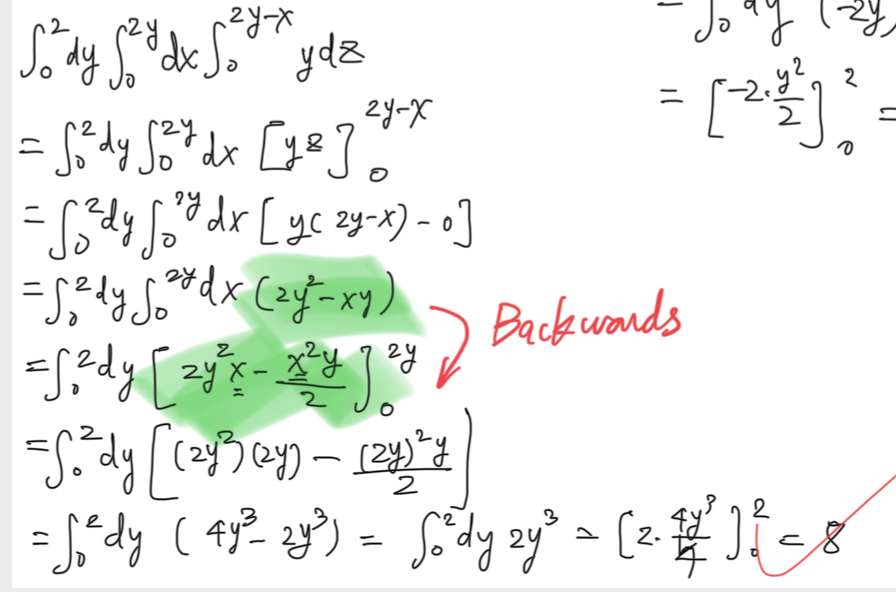 ∫₀² dy ∫₀^{2y} dx ∫₀^{2y-x} y dz
= ∫₀² dy ∫₀^{2y} dx [yz]₀^{2y-x}
= ∫₀² dy ∫₀^{2y} dx [y(2y-x) - 0]
= ∫₀² dy ∫₀^{2y} dx (2y² - xy)
Backwards
= ∫₀² dy [2y²x - x²y/2]₀^{2y}
= ∫₀² dy [(2y²)(2y) - (2y)²y/2]
= ∫₀² dy (4y³ - 2y³) = ∫₀² dy 2y³ = [2·4y³/4]₀² = 8
= ∫₀ dy (-2y)
= [-2·y²/2]₀² =